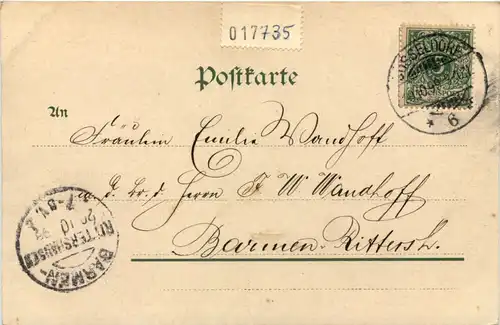 017735
Postkarte
An
Fräulein Emilie Wandhoff
a. d. br. d. Herrn F. W. Wandhoff
Barmen-Rittersh.
DÜSSELDORF
* 6
BARMEN-
RITTERSHAUSEN
7-8 V.